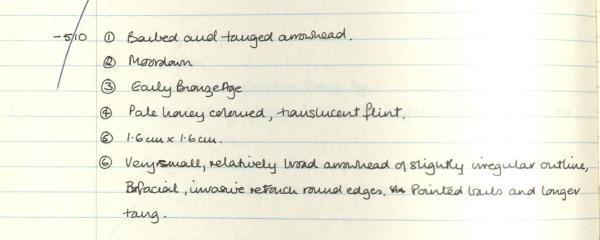 -510 ① Barbed and tanged arrowhead.
② Moordown
③ Early Bronze Age
④ Pale honey coloured, translucent flint.
⑤ 1.6cm x 1.6cm.
⑥ Very small, relatively broad arrowhead of slightly irregular outline,
Bifacial, invasive retouch round edges. Pointed barbs and longer
tang.